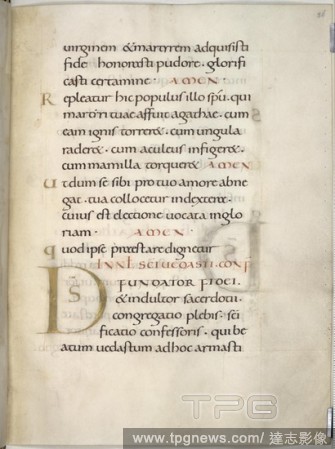 26
uirginem & martyrem adquisisti
fide honorasti pudore· glorifi
casti certamine· AMEN
Repleatur hic populus illo spu· qui
martyri tuae affuit agathae· cum
eam ignis torrer&· cum ungula
rader&· cum aculeus infiger&·
cum mamilla torquer& AMEN
Ut dum se sibi pro tuo amore abne
gat· tua collocetur in dextera·
cuius est electione uocata in glo
riam· AMEN
quod ipse praestare dignetur
SCI UEDASTI· CONF
DS FUNDATOR FIDEI·
& indultor sacerdotii·
congregatio plebis· sci
ficatio confessoris· qui be
atum uedastum ad hoc armasti
TPG
www.tpgnews.com/ 達志影像